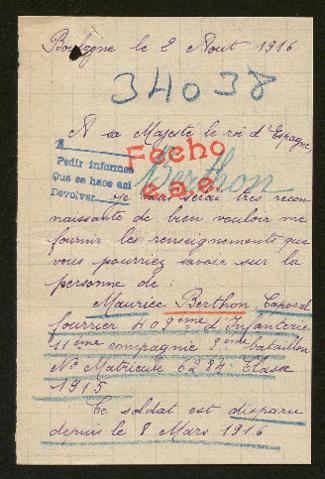 Boulogne le 2 Aout 1916
34038
A sa Majesté le roi d'Espagne,
Fecho
Pedir informes
Que se hace así
Devolver
Berthon
e.a.e.
Je vous serai très recon
naissante de bien vouloir me
fournir les renseignements que
vous pourriez savoir sur la
personne de :
Maurice Berthon Caporal
fourrier 409ème d'Infanterie
11ème compagnie 3ème bataillon
No Matricule 6284 Classe
1915
Ce soldat est disparu
depuis le 8 Mars 1916